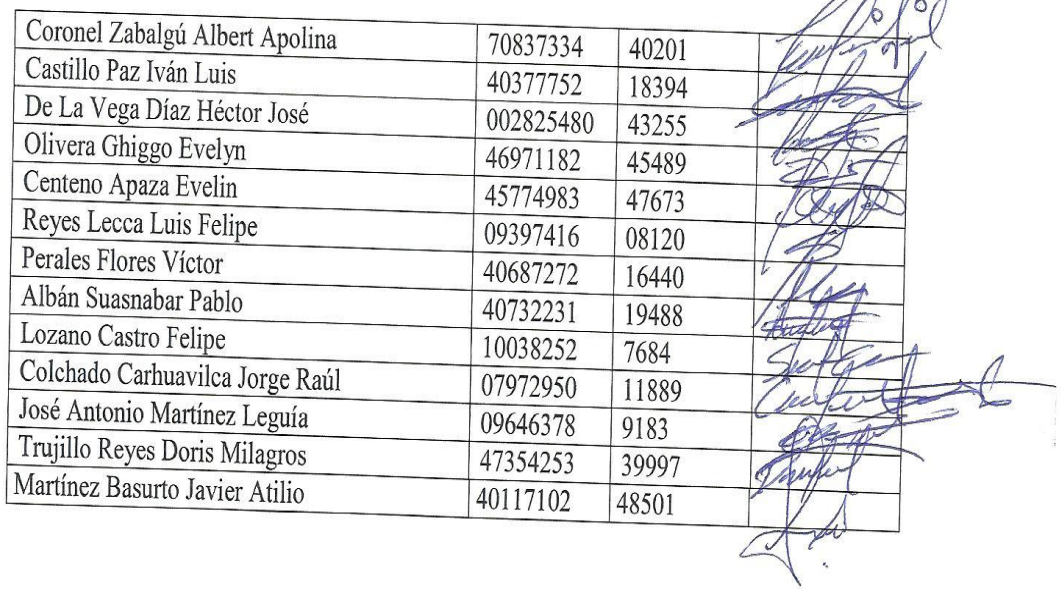 Coronel Zabalgú Albert Apolina 70837334 40201
Castillo Paz Iván Luis 40377752 18394
De La Vega Díaz Héctor José 002825480 43255
Olivera Ghiggo Evelyn 46971182 45489
Centeno Apaza Evelin 45774983 47673
Reyes Lecca Luis Felipe 09397416 08120
Perales Flores Víctor 40687272 16440
Albán Suasnabar Pablo 40732231 19488
Lozano Castro Felipe 10038252 7684
Colchado Carhuavilca Jorge Raúl 07972950 11889
José Antonio Martínez Leguía 09646378 9183
Trujillo Reyes Doris Milagros 47354253 39997
Martínez Basurto Javier Atilio 40117102 48501